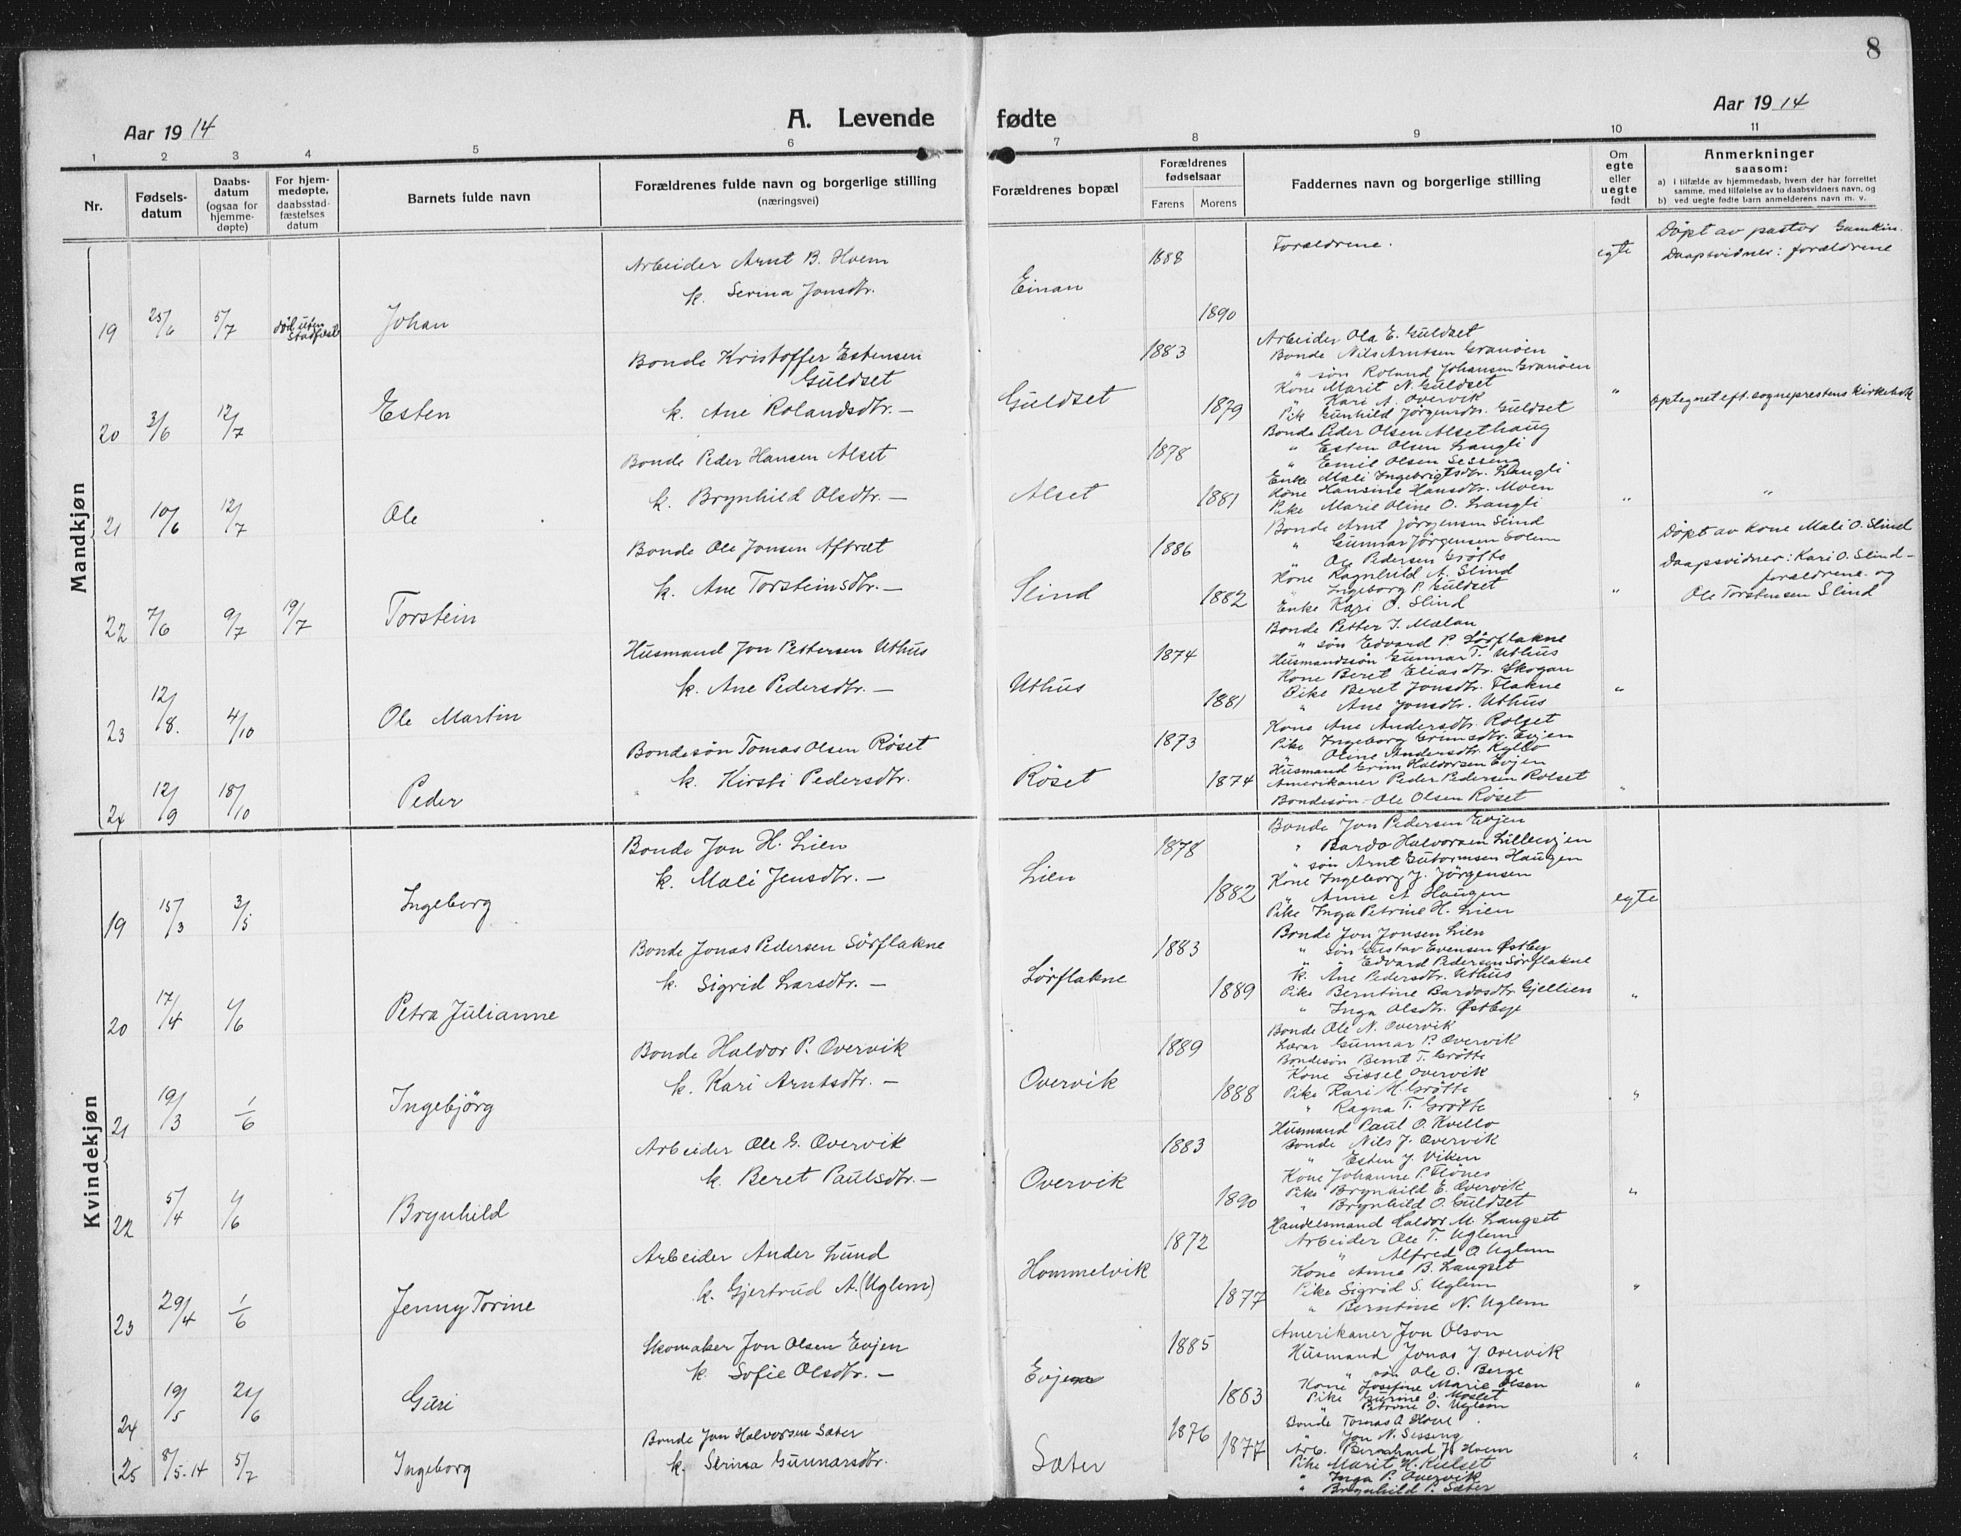 8
Aar 1914
A. Levende fødte
Aar 1914
1 2 3 4 5 6 7 8 9 10 11
Nr.
Fødsels-
datum
Daabs-
datum
(ogsaa for
hjemme-
døpte)
For hjem-
medøpte,
daabsstad-
fæstelses
datum
Barnets fulde navn
Forældrenes fulde navn og borgerlige stilling
(næringsvei)
Forældrenes bopæl
Forældrenes
fødselsaar
Farens Morens
Faddernes navn og borgerlige stilling
Om
egte
eller
uegte
født
Anmerkninger
saasom:
a) i tilfælde av hjemmedaab, hvem der har forrettet
samme, med tilføielse av to daabsvidners navn, og
b) ved uegte fødte barn anmelderens navn m. v.
Mandkjøn
19 25/6 5/7 død uten
stadfæst.
Johan
Arbeider Arnt B. Hvem
k. Serina Jonsdtr.
Einan
1888
1890
Forældrene.
egte
Døpt av pastor
Daapsvidner: forældrene
20 3/6 12/7
Esten
Bonde Kristoffer Estensen
Guldset
k. Ane Rolandsdtr. —
Guldset
1883
1879
Arbeider Ola E. Guldset
Bonde Nils Arntsen Granöen
" søn Roland Johansen Granöen
Kone Marit N. Guldset
" Kari A. Overvik
Pike Gunhild Jörgensdtr. Guldset
"
optegnet eft. sogneprestens kirkebok
21 10/6 12/7
Ole
Bonde Peder Hansen Alset
k. Brynhild Olsdtr. —
Alset
1878
1881
Bonde Peder Olsen Alsethaug
" Esten Olsen Langli
" Emil Olsen Sesseng
Enke Mali Ingebrigtsdtr. Langli
Kone Hansine Hansdtr. Moen
Pike Marie Oline O. Langli
"
"
22 7/6 9/7 19/7
Torstein
Bonde Ole Jonsen Aftret
k. Ane Torsteinsdtr. —
Slind
1886
1882
Bonde Arnt Jörgensen Slind
" Gunnar Jörgensen Solem
" Ole Pedersen Grötte
Kone Ragnhild A. Slind
" Ingeborg P. Guldset
Enke Kari O. Slind
"
Døpt av Kone Mali O. Slind
Daapsvidner: Kari O. Slind -
forældrene og
Ole Torstensen Slind
23 12/8. 4/10
Ole Martin
Husmand Jon Pettersen Uthus
k. Ane Pedersdtr. —
Uthus
1874
1881
Bonde Petter J. Mælan
" søn Edvard P. Sörflakne
Husmandssøn Gunnar T. Uthus
Kone Beret Eliasdtr. Skogan
Pike Beret Jonsdtr. Flakne
" Ane Jonsdtr. Uthus
"
24 12/9 18/10
Peder
Bondesøn Tomas Olsen Røset
k. Kirsti Pedersdtr.
Røset
1873
1874
Kone Ane Andersdtr. Rolset
Pike Ingeborg Grimsdtr. Evjen
" Oline Andersdtr. Kyllo
Husmand Grim Haldorsen Evjen
Amerikaner Peder Pedersen Rolset
Bondesøn Ole Olsen Røset
"
Kvindekjøn
19 15/3 3/5
Ingeborg
Bonde Jon H. Lien
k. Mali Jensdtr. —
Lien
1878
1882
Bonde Jon Pedersen Evjen
" Bardo Halvorsen Lilleevjen
" søn Arnt Gutormsen Haugen
Kone Ingeborg J. Jörgensen
" Anne A. Haugen
Pike Inga Petrine H. Lien
egte
20 17/4 1/6
Petra Julianne
Bonde Jonas Pedersen Sörflakne
k. Sigrid Larsdtr. —
Sörflakne
1883
1889
Bonde Jon Jonsen Lien
" søn Gustav Evensen Østby
" " Edvard Pedersen Sörflakne
k. Ane Pedersdtr. Uthus
Pike Berntine Bardosdtr. Gjellien
" Inga Olsdtr. Østbye
"
21 19/3 1/6
Ingebjörg
Bonde Haldor P. Overvik
k. Kari Arntsdtr. —
Overvik
1889
1888
Bonde Ole N. Overvik
Lærer Gunnar P. Overvik
Bondesøn Bernt T. Grötte
Kone Sissel Overvik
Pike Kari M. Grötte
" Ragna T. Grötte
"
22 5/4 1/6
Brynhild
Arbeider Ole G. Overvik
k. Beret Paulsdtr. —
Overvik
1883
1890
Husmand Paul O. Kvello
Bonde Nils J. Overvik
" Esten J. Viken
Kone Johanne P. Flönes
Pike Brynhild E. Overvik
" Brynhild O. Guldset
"
23 29/4 1/6
Jenny Torine
Arbeider Ander Lund
k. Gjertrud A. (Uglem)
Hommelvik
1872
1877
Handelsmand Haldor M. Langset
Arbeider Ole T. Uglem
" Alfred O. Uglem
Kone Anne B. Langset
Pike Sigrid S. Uglem
" Berntine N. Uglem
"
24 19/5 21/6
Guri
Skomaker Jon Olsen Evjen
k. Sofie Olsdtr. —
Evjen
1885
1883
Amerikaner Jon Olson
Husmand Jonas J. Overvik
" søn Ole O. Berge
Kone Josefine Marie Olsen
Pike Gurine O. Moslet
" Petrine O. Uglem
"
25 8/5-14 5/7
Ingeborg
Bonde Jon Halvorsen Sæter
k. Serina Gunnarsdtr.
Sæter
1876
1877
Bonde Tomas A. Hove
" Jon N. Sesseng
Arb. Bernhard J. Hvem
Pike Marit H. Kulset
" Inga P. Overvik
" Brynhild P. Sæter
"